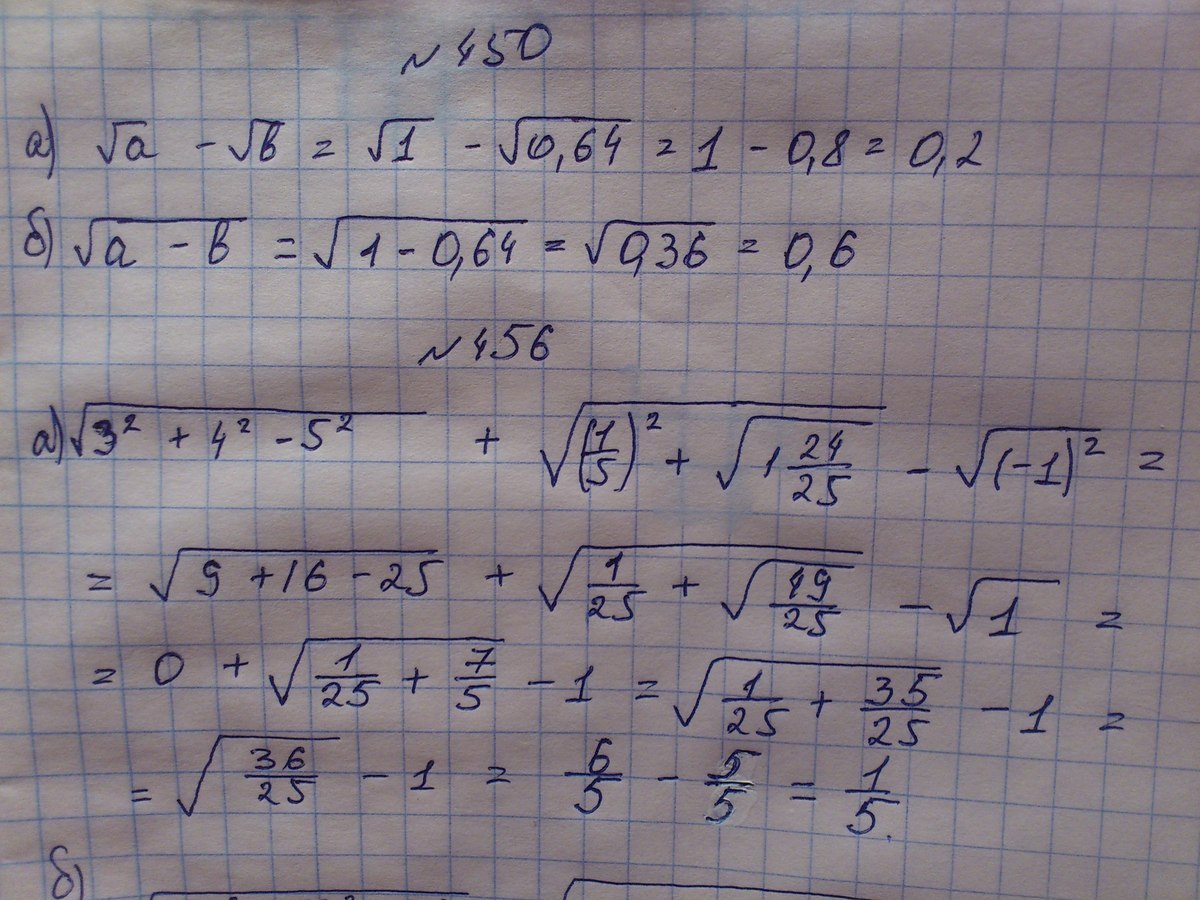 №450
а) √a - √b = √1 - √0,64 = 1 - 0,8 = 0,2
б) √(a - b) = √(1 - 0,64) = √0,36 = 0,6
№456
а) √(3² + 4² - 5²) + √((1/5)² + √(1 24/25)) - √((-1)²) =
= √(9 + 16 - 25) + √(1/25 + √(49/25)) - √1 =
= 0 + √(1/25 + 7/5) - 1 = √(1/25 + 35/25) - 1 =
= √(36/25) - 1 = 6/5 - 5/5 = 1/5.
б)